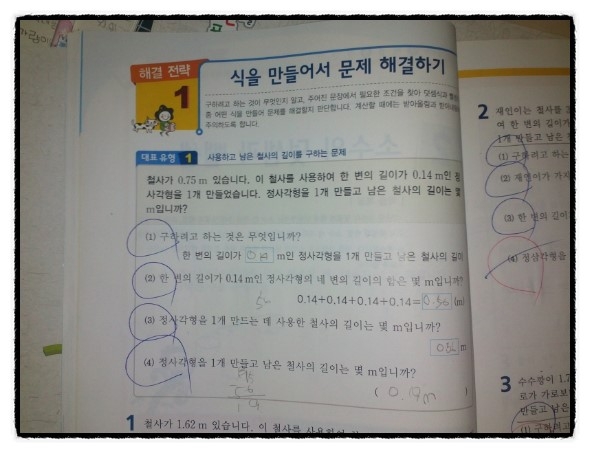 해결 전략
1
식을 만들어서 문제 해결하기
구하려고 하는 것이 무엇인지 알고, 주어진 문장에서 필요한 조건을 찾아 덧셈식과
중 어떤 식을 만들어 문제를 해결할지 판단합니다. 계산할 때에는 받아올림과
주의하도록 합니다.
대표 유형 1 사용하고 남은 철사의 길이를 구하는 문제
철사가 0.75 m 있습니다. 이 철사를 사용하여 한 변의 길이가 0.14 m인 정
사각형을 1개 만들었습니다. 정사각형을 1개 만들고 남은 철사의 길이는 몇
m입니까?
(1) 구하려고 하는 것은 무엇입니까?
한 변의 길이가 m인 정사각형을 1개 만들고 남은 철사의 길이
(2) 한 변의 길이가 0.14 m인 정사각형의 네 변의 길이의 합은 몇 m입니까?
0.14+0.14+0.14+0.14= (m)
(3) 정사각형을 1개 만드는 데 사용한 철사의 길이는 몇 m입니까?
m
(4) 정사각형을 1개 만들고 남은 철사의 길이는 몇 m입니까?
( 0.19m
1 철사가 1.62 m 있습니다. 이 철사를 사용하여
2 재인이는 철사를
여 한 변의 길이가
1개 만들고 남은
(1) 구하려고 하는
(2) 재인이가 가지
(3) 한 변의 길이
(4) 정삼각형을
3 수수깡이 1.7
로가 가로보
만들고 남은
(1) 구하려고